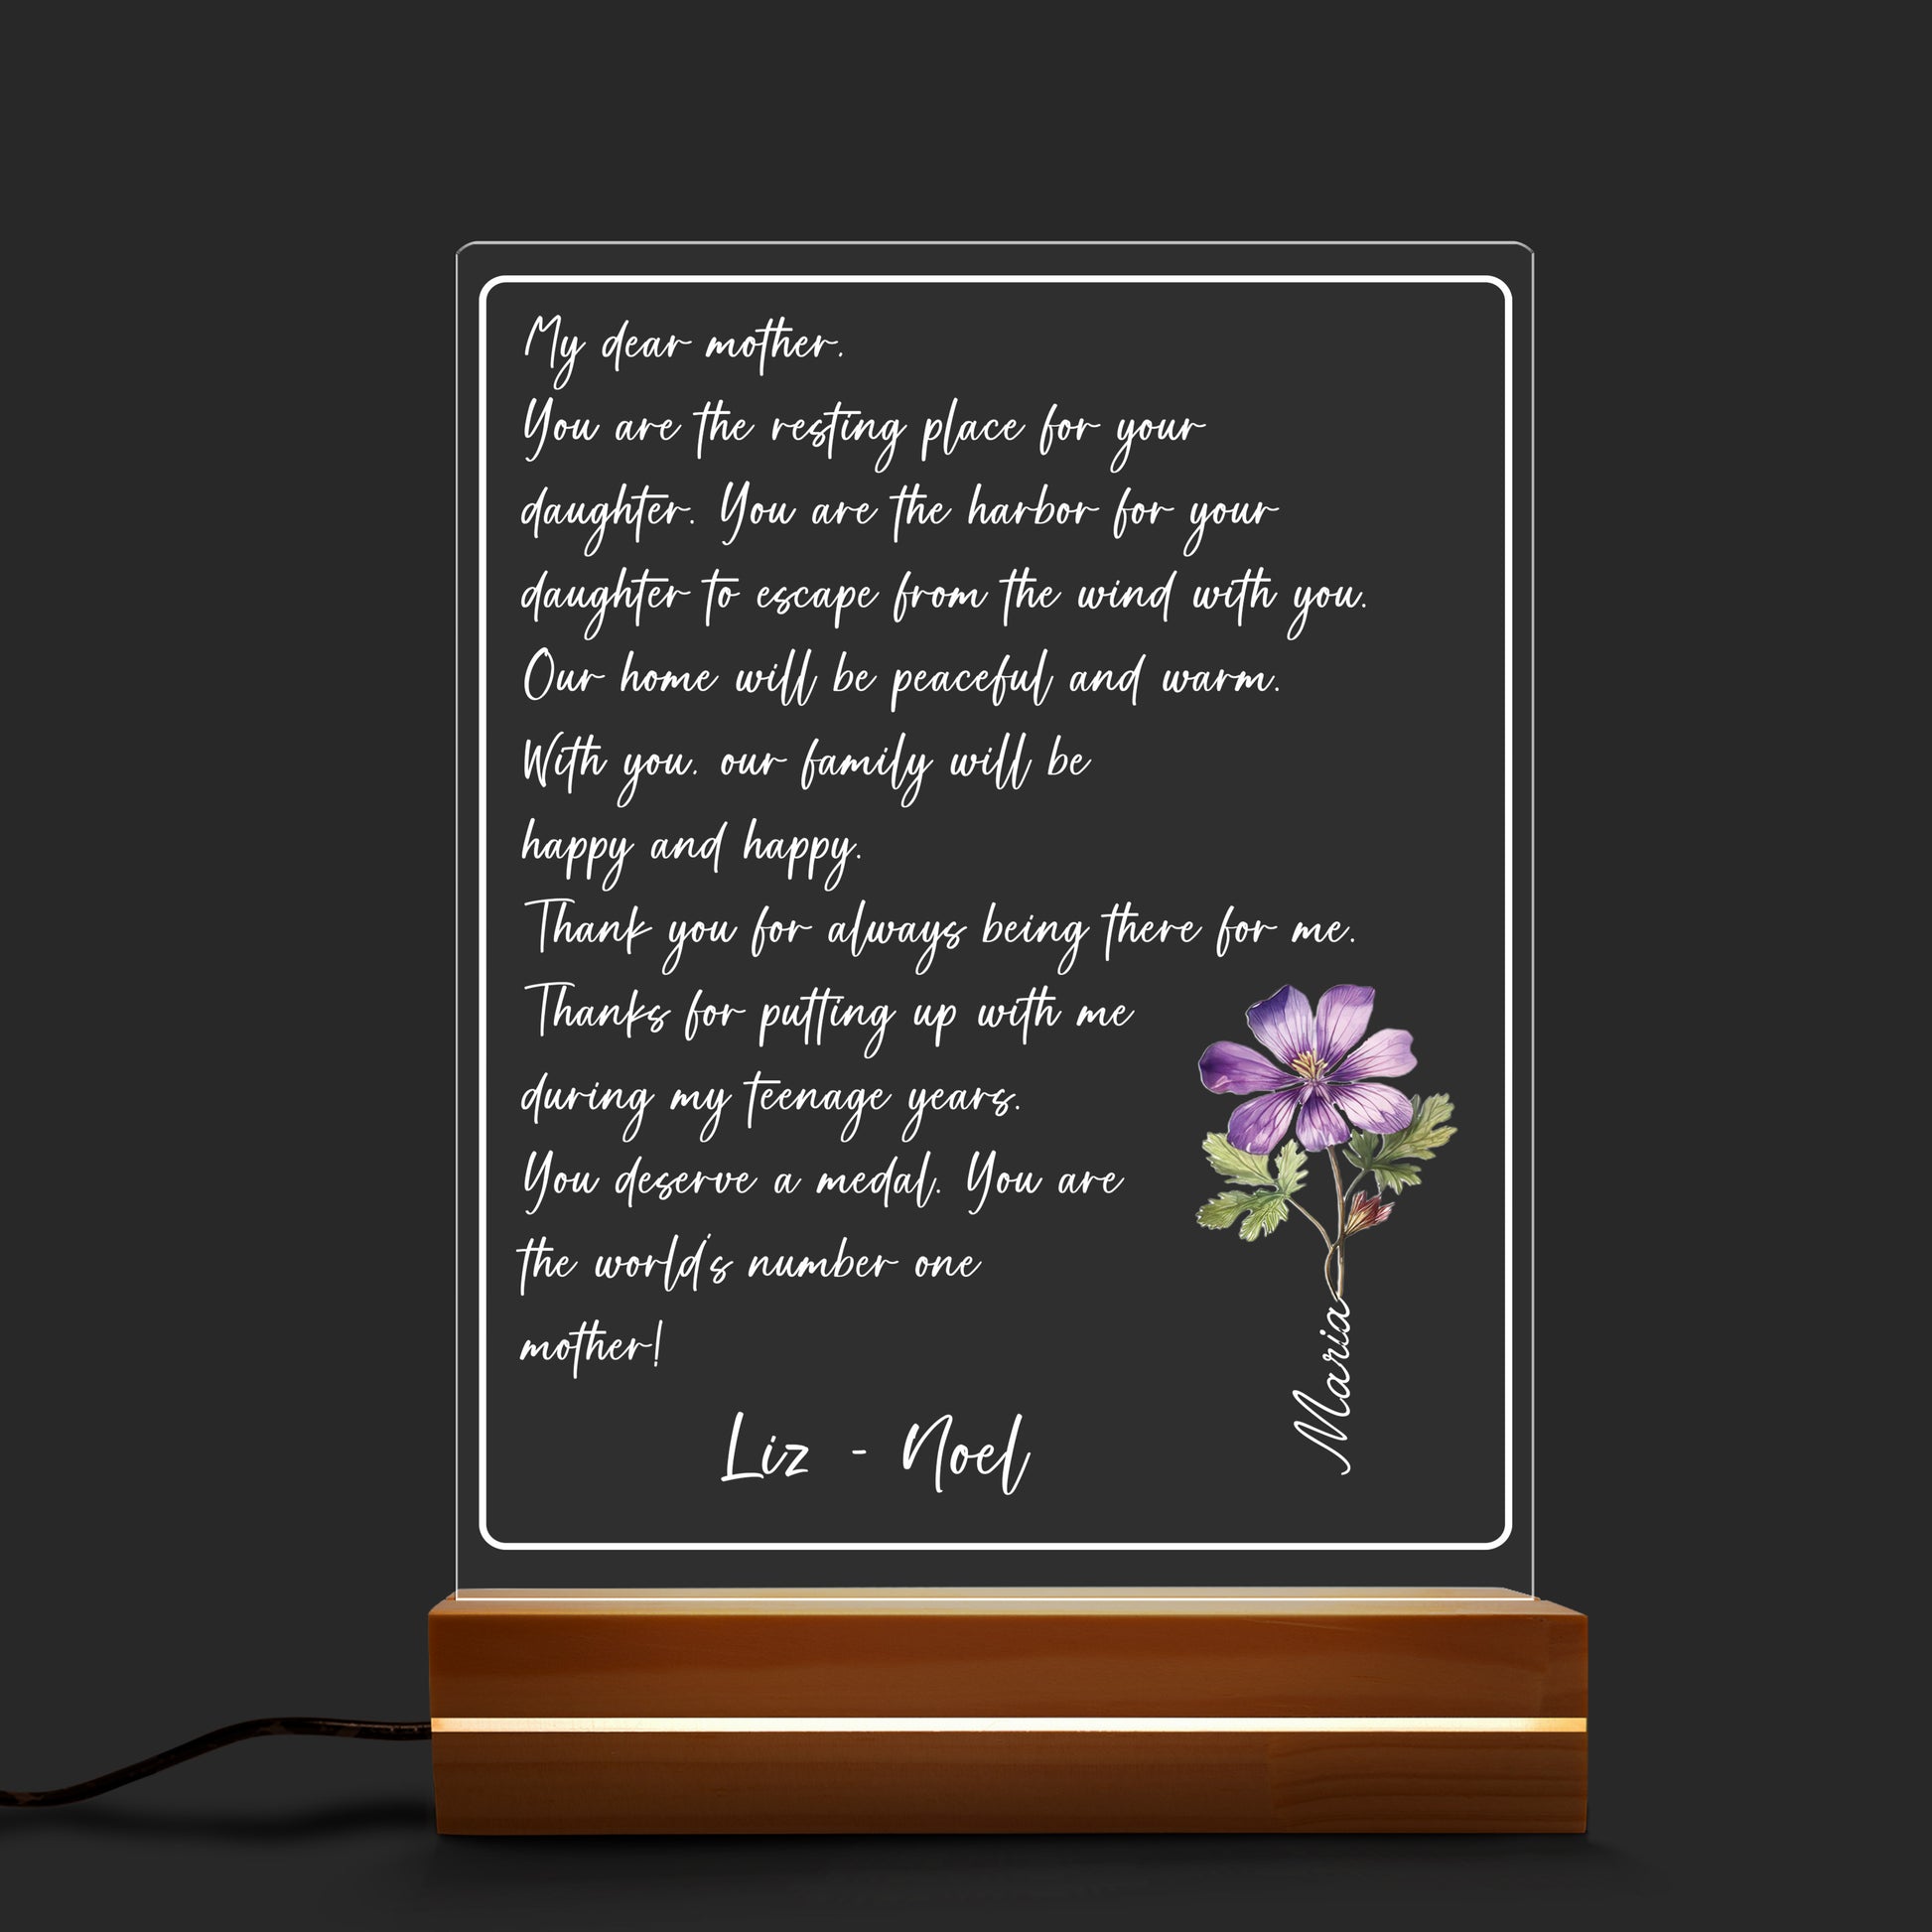 My dear mother.
You are the resting place for your
daughter. You are the harbor for your
daughter to escape from the wind with you.
Our home will be peaceful and warm.
With you. our family will be
happy and happy.
Thank you for always being there for me.
Thanks for putting up with me
during my teenage years.
You deserve a medal. You are
the world's number one
mother!
Liz - Noel
Maria